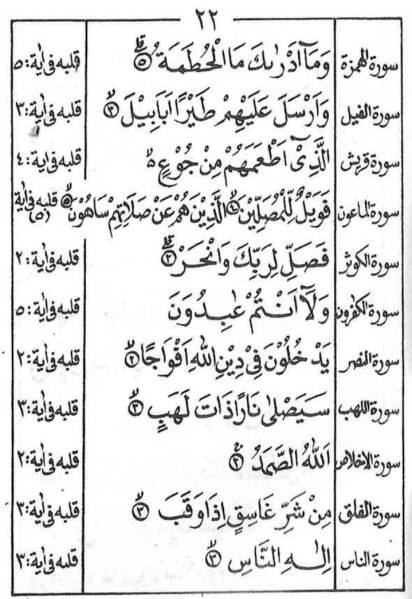 ٢٢
سورة الهمزة وَمَآ اَدْرٰىكَ مَا الْحُطَمَةُ ۝٥ قلبه فى اٰية: ٥
سورة الفيل وَاَرْسَلَ عَلَيْهِمْ طَيْرًا اَبَابِيْلَ ۝٣ قلبه فى اٰية: ٣
سورة قريش الَّذِىْٓ اَطْعَمَهُمْ مِنْ جُوْعٍ ۥۙ قلبه فى اٰية: ٤
سورة الماعون فَوَيْلٌ لِّلْمُصَلِّيْنَ ۝٤ الَّذِيْنَ هُمْ عَنْ صَلَاتِهِمْ سَاهُوْنَ ۝٥ قلبه فى اٰية (٥)
سورة الكوثر فَصَلِّ لِرَبِّكَ وَانْحَرْ ۝٢ قلبه فى اٰية: ٢
سورة الكٰفرون وَلَآ اَنْتُمْ عٰبِدُوْنَ قلبه فى اٰية: ٥
سورة النصر يَدْخُلُوْنَ فِىْ دِيْنِ اللّٰهِ اَفْوَاجًا ۝٢ قلبه فى اٰية: ٢
سورة اللهب سَيَصْلٰى نَارًا ذَاتَ لَهَبٍ ۝٣ قلبه فى اٰية: ٣
سورة الاخلاص اَللّٰهُ الصَّمَدُ ۝٢ قلبه فى اٰية: ٢
سورة الفلق مِنْ شَرِّ غَاسِقٍ اِذَا وَقَبَ ۝٣ قلبه فى اٰية: ٣
سورة الناس اِلٰهِ النَّاسِ ۝٣ قلبه فى اٰية: ٣